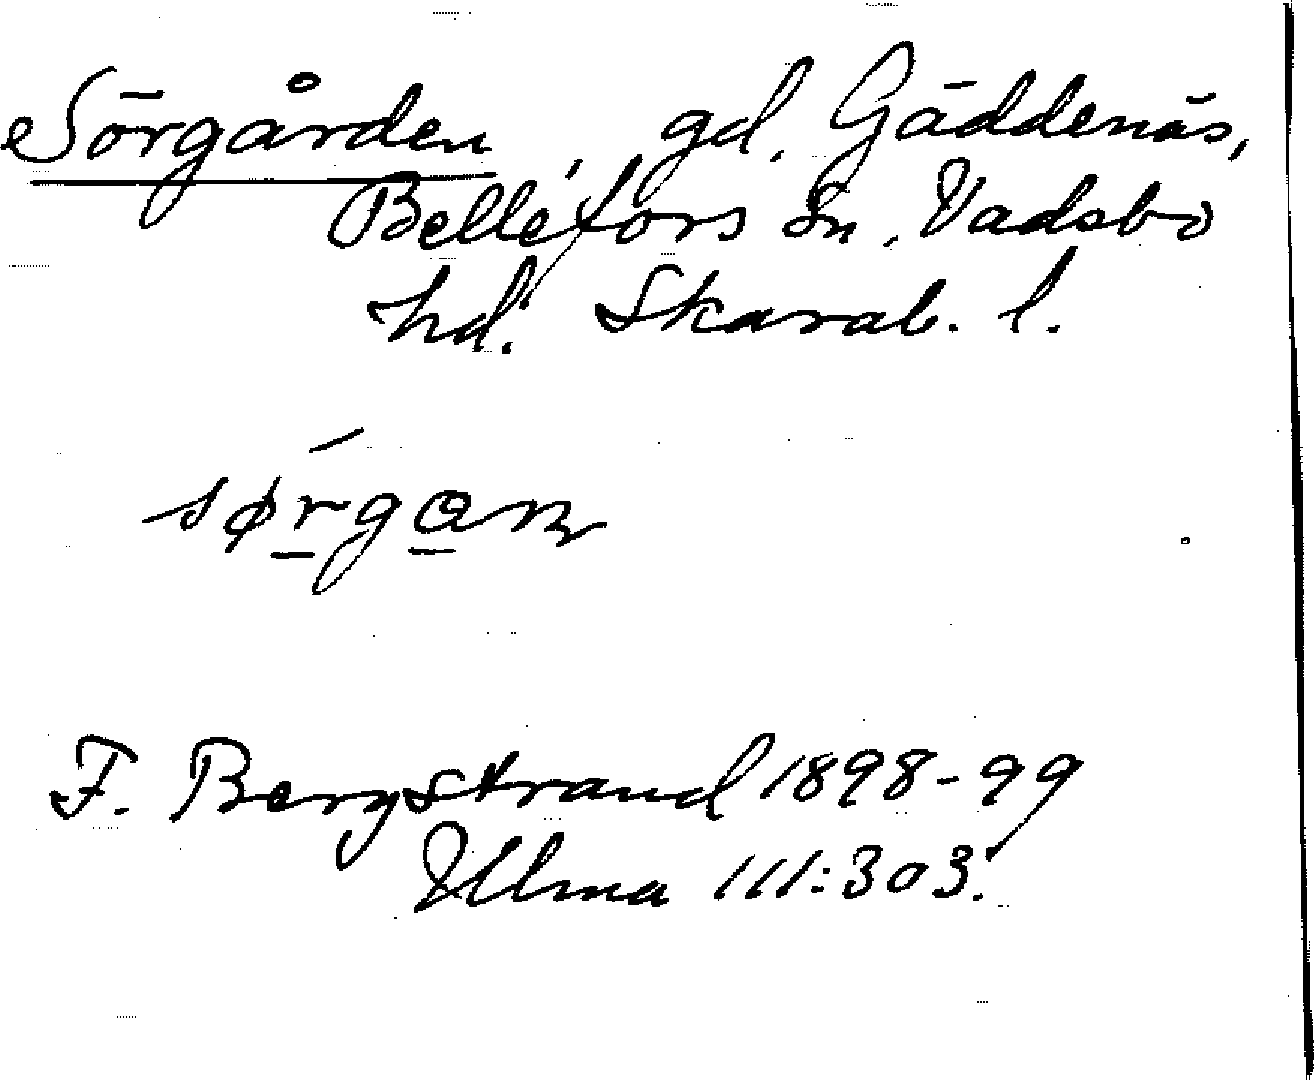 Sörgården, gd. Gäddenäs,
Bellefors sn, Vadsbo
hd. Skarab. l.
sǿrgan
F. Bergstrand 1898-99
Ulma 111:303.